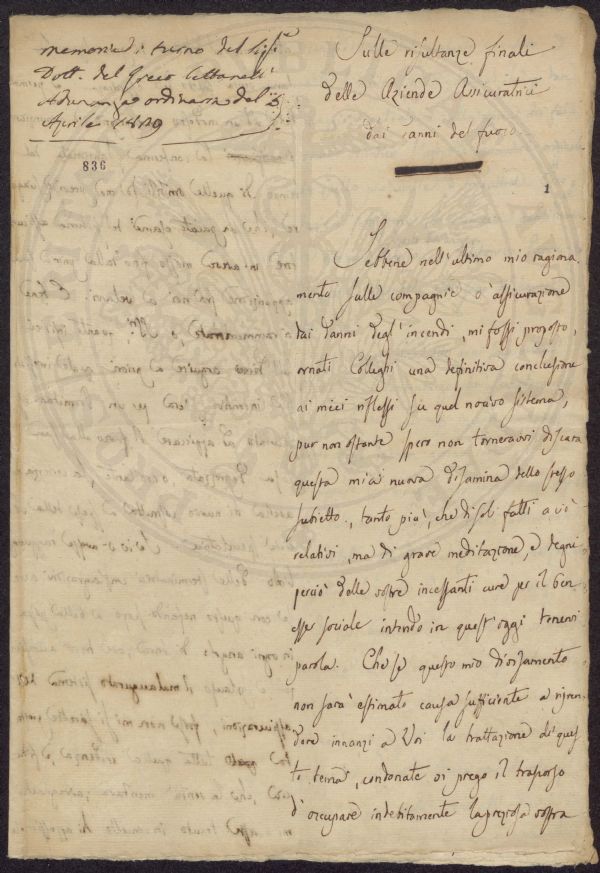 Memoria di turno del Sig.r
Dott. del Greco letta nell'
Adunanza ordinaria del dì 5
Aprile 1829
836
Sulle risultanze finali
delle Aziende Assicuratrici
dai danni del fuoco.
1
Sebbene nell'ultimo mio ragiona
mento sulle compagnie d'assicurazione
dai danni degl'incendi, mi fossi proposto,
ornati Colleghi una definitiva conclusione
ai miei riflessi su quel nuovo sistema,
pur non ostante spero non tornerauvi discara
questa mia nuova disamina dello stesso
subietto, tanto più, che di soli fatti a ciò
relativi, ma di grave meditazione, e degni
perciò delle vostre incessanti cure per il ben
esser sociale intendo in quest'oggi tenervi
parola. Che se questo mio divisamento
non sarà estimato causa sufficiente a ripren
dere innanzi a Voi la trattazione di ques
to tema, condonate vi prego il trapasso
d'occupare indebitamente la preziosa vostra